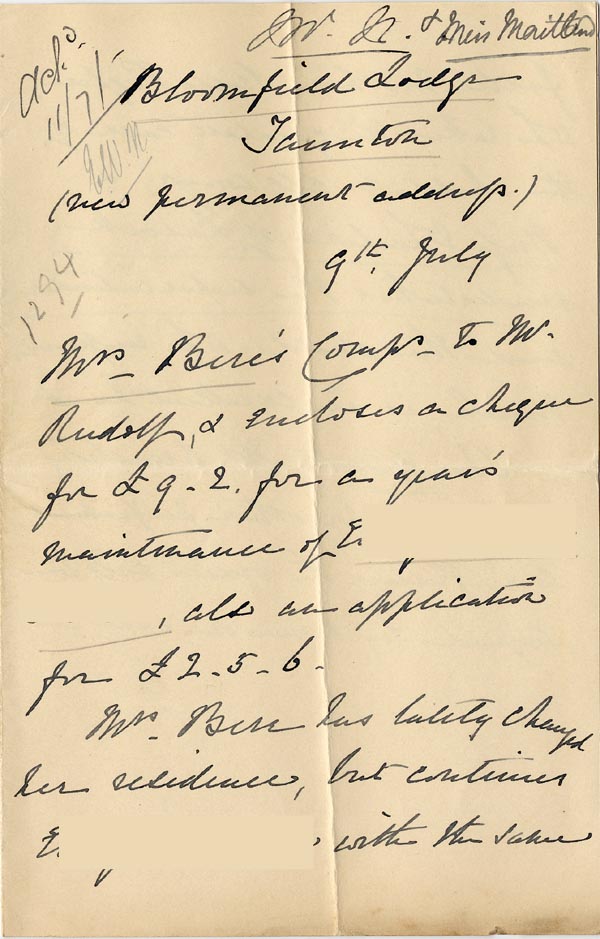 & Miss Maitland
Ackd.
11/7/
E.W.N
Bloomfield Lodge
Taunton
(new permanent address.)
9th. July
1294
Mrs Bere's Comps- to Mr.
Rudolf, & encloses a cheque
for £9-2. for a year's
maintenance of E.
, also an application
for £2-5-6-
Mrs. Bere has lately changed
her residence, but continues
E. with the same